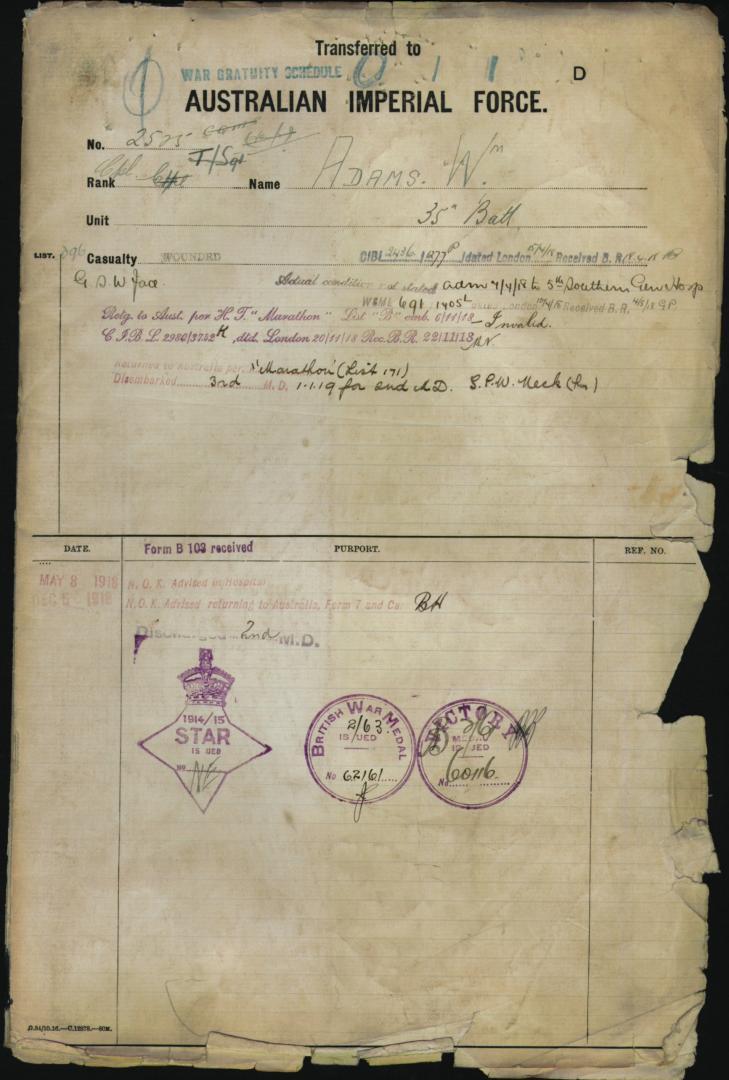 Transferred to
WAR GRATUITY SCHEDULE 0 1 1 D
AUSTRALIAN IMPERIAL FORCE.
No. 2525
T/Sgt
Rank Cpl Name ADAMS. Wm
Unit 35th Batt
LIST. 396 Casualty WOUNDED CIBL 2436/1277P dated London Received B.R.
G.S.W Face Actual condition not stated adm 7/4/18 to 5th Southern Gen Hosp
691 1405 London Received B.R. 4/5/18
Retg. to Aust. per H.T. "Marathon" List "B" emb. 6/11/18 Invalid.
C.I.B.L. 2980/3752 dtd. London 20/11/18 Rec. B.R. 22/11/18
Returned to Australia per "Marathon" (List 171)
Disembarked 3rd M.D. 1.1.19 for 2nd M.D. S.P.W. Neck
DATE. Form B 103 received PURPORT. REF. NO.
MAY 8 1918 N.O.K. Advised in Hospital
DEC 5 1918 N.O.K. Advised returning to Australia, Form 7 and Ca. BH
Discharged 2nd M.D.
1914/15
STAR
ISSUED
No NE
BRITISH WAR MEDAL
2/63
ISSUED
No 62161
VICTORY
MEDAL
ISSUED
No. 60116
D.84/10.16.—C.12878.—60M.